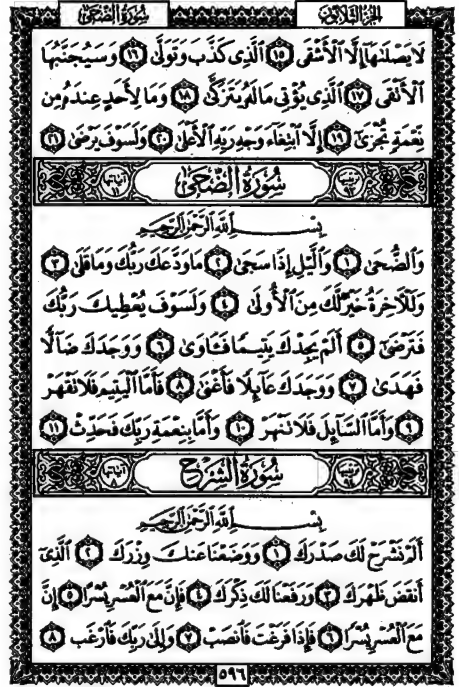 سُورَةُ الضُّحَىٰ الجزء الثلاثون
لَا يَصْلَىٰهَآ إِلَّا ٱلْأَشْقَى ١٥ ٱلَّذِى كَذَّبَ وَتَوَلَّىٰ ١٦ وَسَيُجَنَّبُهَا
ٱلْأَتْقَى ١٧ ٱلَّذِى يُؤْتِى مَالَهُۥ يَتَزَكَّىٰ ١٨ وَمَا لِأَحَدٍ عِندَهُۥ مِن
نِّعْمَةٍ تُجْزَىٰٓ ١٩ إِلَّا ٱبْتِغَآءَ وَجْهِ رَبِّهِ ٱلْأَعْلَىٰ ٢٠ وَلَسَوْفَ يَرْضَىٰ ٢١
ترتيبها ٩٣ سُورَةُ الضُّحَىٰ آياتها ١١
بِسْمِ ٱللَّهِ ٱلرَّحْمَٰنِ ٱلرَّحِيمِ
وَٱلضُّحَىٰ ١ وَٱلَّيْلِ إِذَا سَجَىٰ ٢ مَا وَدَّعَكَ رَبُّكَ وَمَا قَلَىٰ ٣
وَلَلْءَاخِرَةُ خَيْرٌ لَّكَ مِنَ ٱلْأُولَىٰ ٤ وَلَسَوْفَ يُعْطِيكَ رَبُّكَ
فَتَرْضَىٰٓ ٥ أَلَمْ يَجِدْكَ يَتِيمًا فَـَٔاوَىٰ ٦ وَوَجَدَكَ ضَآلًّا
فَهَدَىٰ ٧ وَوَجَدَكَ عَآئِلًا فَأَغْنَىٰ ٨ فَأَمَّا ٱلْيَتِيمَ فَلَا تَقْهَرْ
٩ وَأَمَّا ٱلسَّآئِلَ فَلَا تَنْهَرْ ١٠ وَأَمَّا بِنِعْمَةِ رَبِّكَ فَحَدِّثْ ١١
ترتيبها ٩٤ سُورَةُ الشَّرْحِ آياتها ٨
بِسْمِ ٱللَّهِ ٱلرَّحْمَٰنِ ٱلرَّحِيمِ
أَلَمْ نَشْرَحْ لَكَ صَدْرَكَ ١ وَوَضَعْنَا عَنكَ وِزْرَكَ ٢ ٱلَّذِىٓ
أَنقَضَ ظَهْرَكَ ٣ وَرَفَعْنَا لَكَ ذِكْرَكَ ٤ فَإِنَّ مَعَ ٱلْعُسْرِ يُسْرًا ٥ إِنَّ
مَعَ ٱلْعُسْرِ يُسْرًا ٦ فَإِذَا فَرَغْتَ فَٱنصَبْ ٧ وَإِلَىٰ رَبِّكَ فَٱرْغَب ٨
٥٩٦